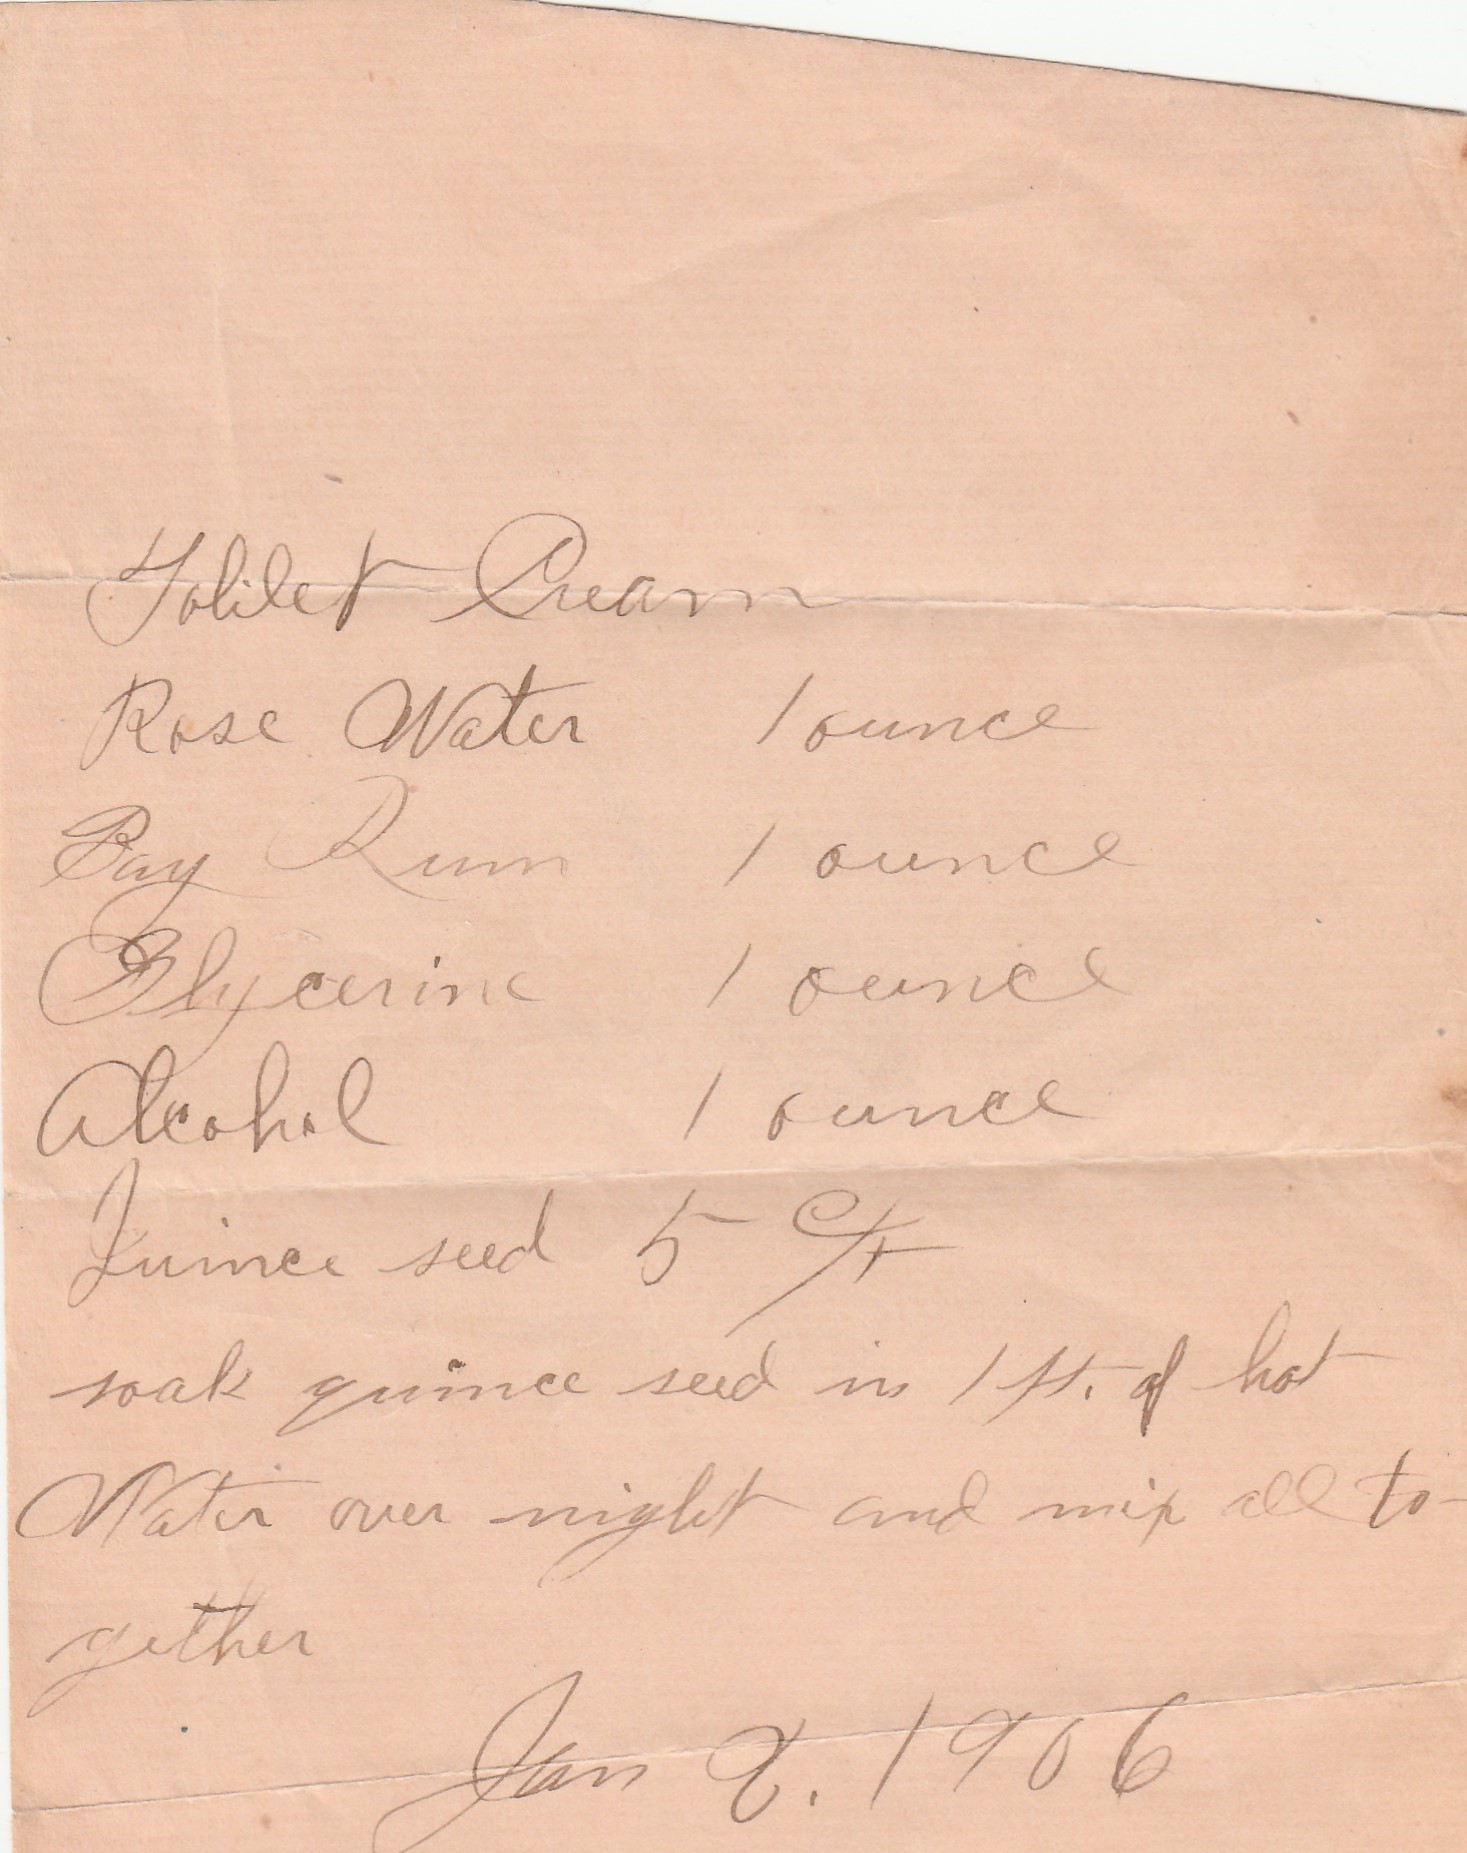 Tolilet Cream
Rose Water 1 ounce
Bay Rum 1 ounce
Glycerine 1 ounce
Alcohol 1 ounce
Quince seed 5 ct
soak quince seed in 1 pt. of hot
Water over night and mix all to-
gether
Jan 8. 1906